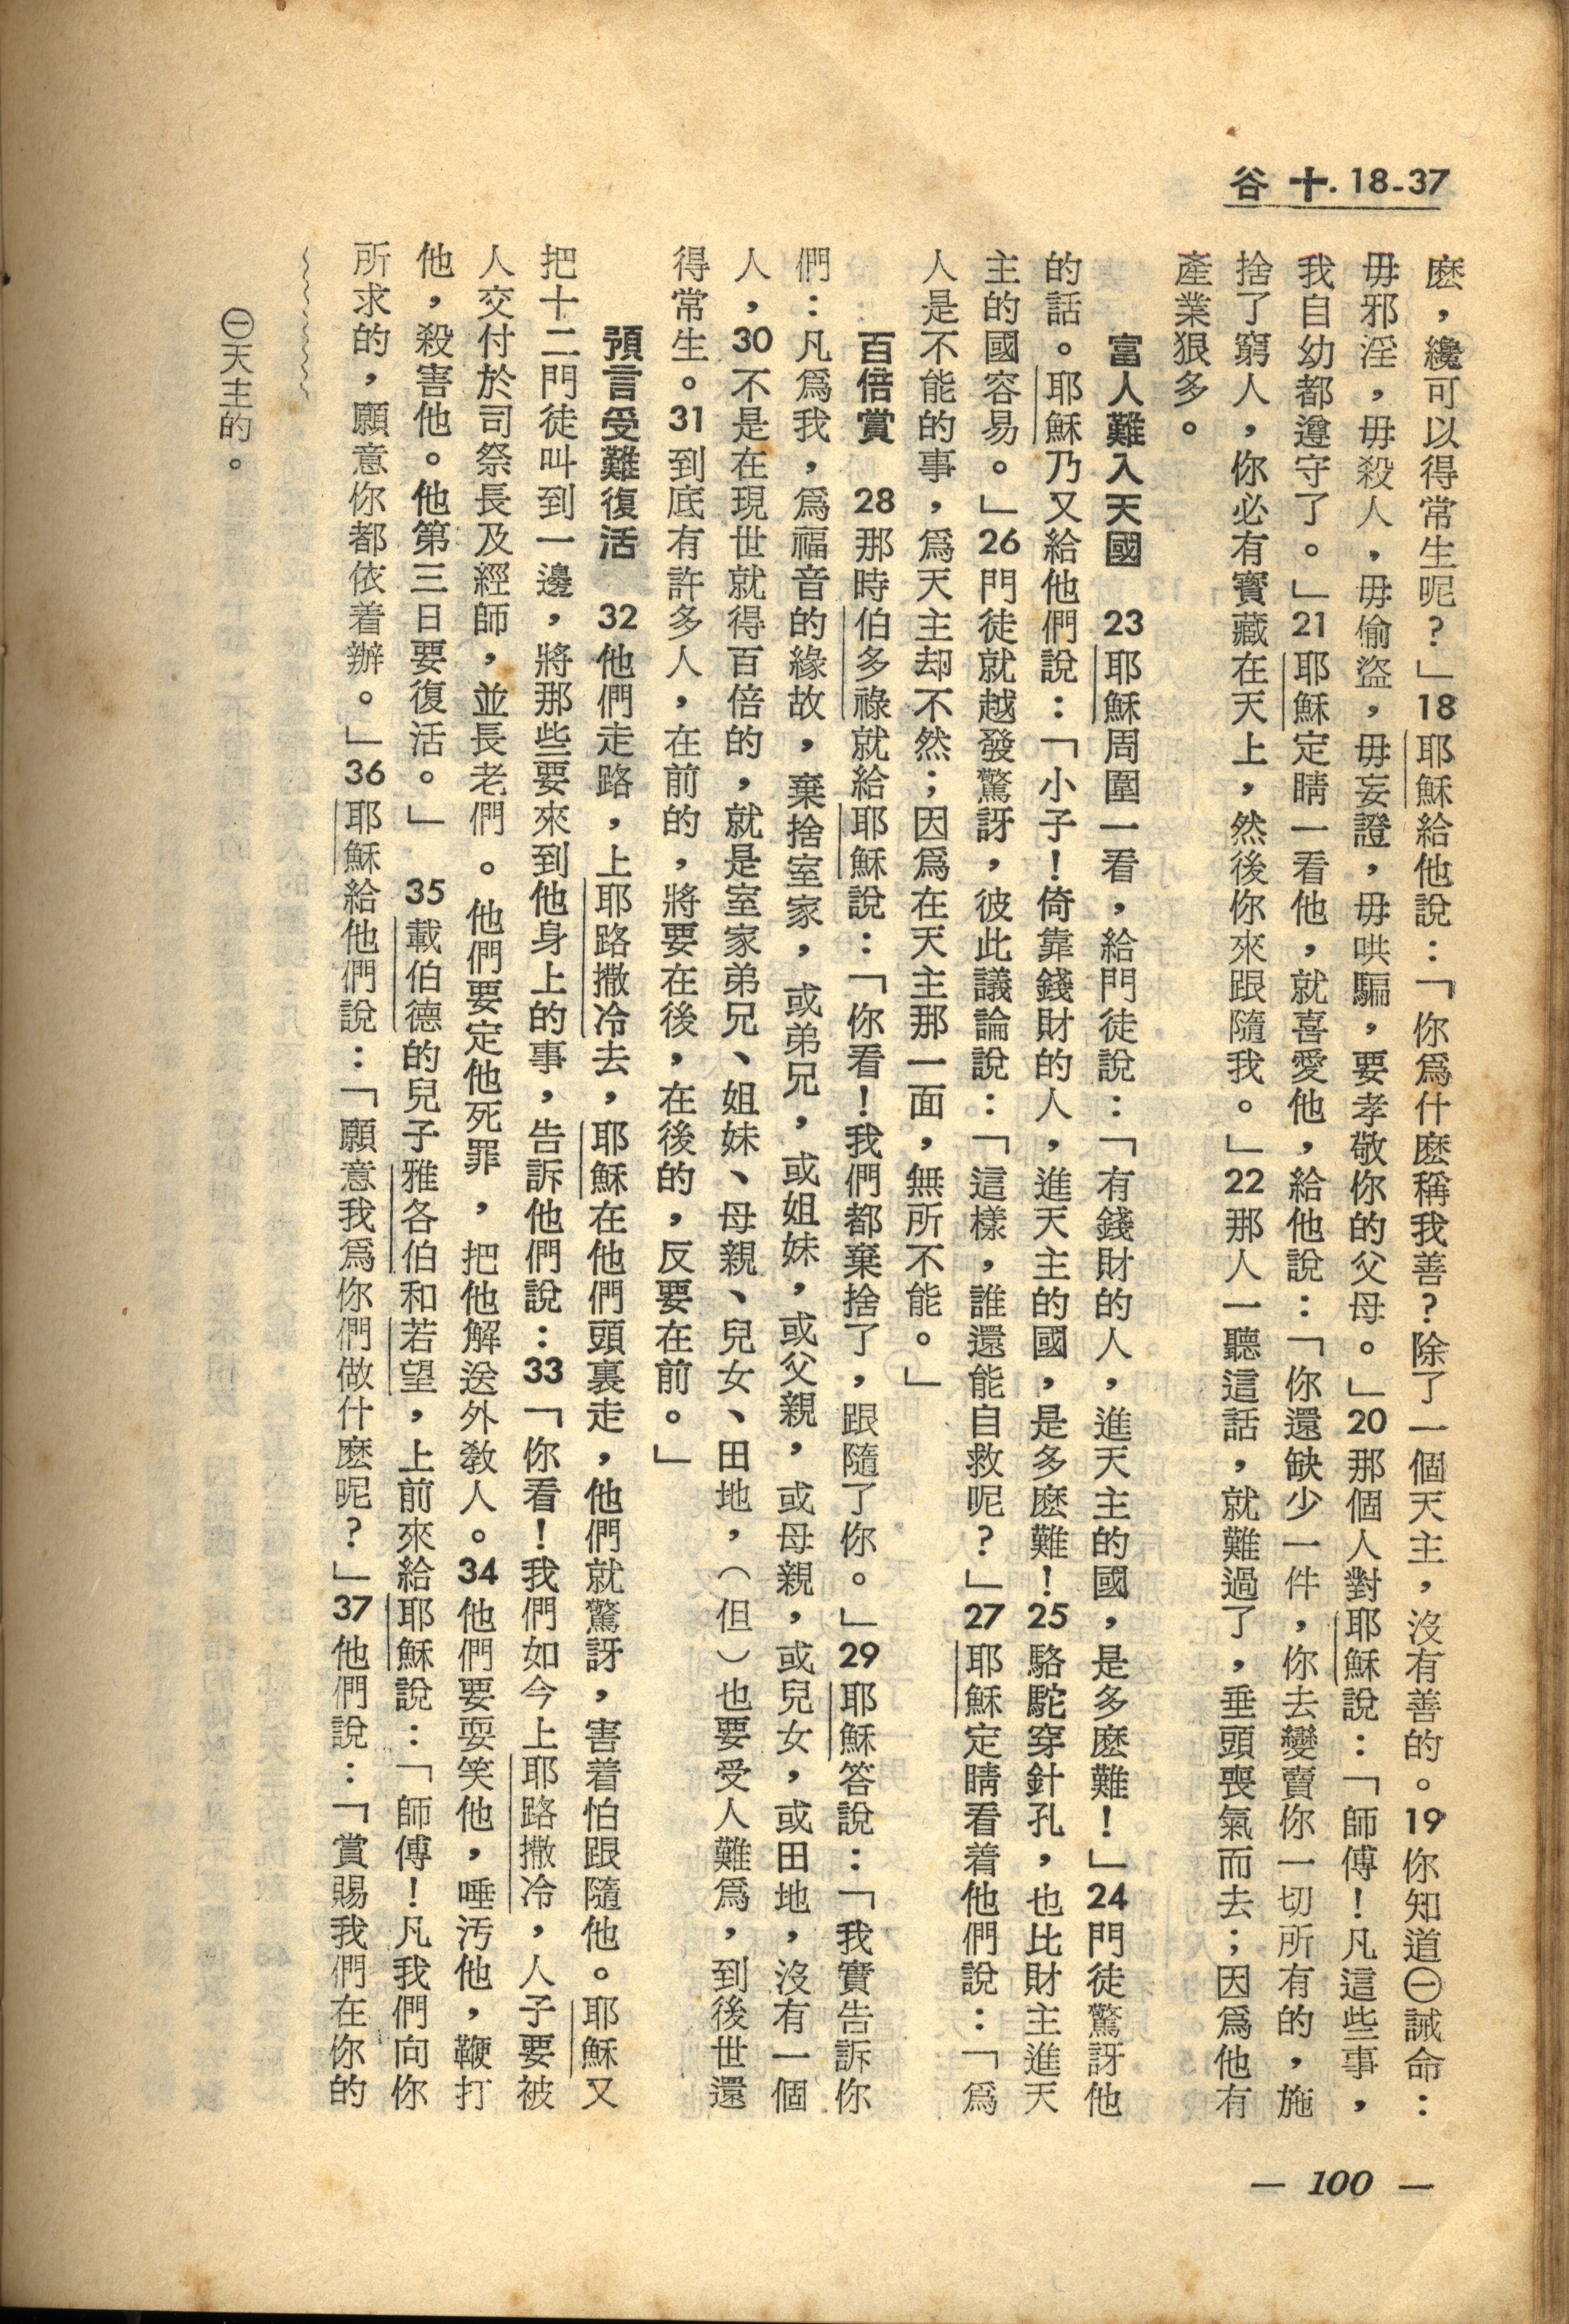 谷 十. 18-37
麽，纔可以得常生呢？」18耶穌給他說：「你爲什麽稱我善？除了一個天主，沒有善的。19你知道㊀誡命：
毋邪淫，毋殺人，毋偷盜，毋妄證，毋哄騙，要孝敬你的父母。」20那個人對耶穌說：「師傅！凡這些事，
我自幼都遵守了。」21耶穌定睛一看他，就喜愛他，給他說：「你還缺少一件，你去變賣你一切所有的，施
捨了窮人，你必有寶藏在天上，然後你來跟隨我。」22那人一聽這話，就難過了，垂頭喪氣而去；因爲他有
產業狠多。
富人難入天國　23耶穌周圍一看，給門徒說：「有錢財的人，進天主的國，是多麽難！」24門徒驚訝他
的話。耶穌乃又給他們說：「小子！倚靠錢財的人，進天主的國，是多麽難！25駱駝穿針孔，也比財主進天
主的國容易。」26門徒就越發驚訝，彼此議論說：「這樣，誰還能自救呢？」27耶穌定睛看着他們說：「爲
人是不能的事，爲天主却不然；因爲在天主那一面，無所不能。」
百倍賞　28那時伯多祿就給耶穌說：「你看！我們都棄捨了，跟隨了你。」29耶穌答說：「我實告訴你
們：凡爲我，爲福音的緣故，棄捨室家，或弟兄，或姐妹，或父親，或母親，或兒女，或田地，沒有一個
人，30不是在現世就得百倍的，就是室家弟兄、姐妹、母親、兒女、田地，（但）也要受人難爲，到後世還
得常生。31到底有許多人，在前的，將要在後，在後的，反要在前。」
預言受難復活　32他們走路，上耶路撒冷去，耶穌在他們頭裏走，他們就驚訝，害着怕跟隨他。耶穌又
把十二門徒叫到一邊，將那些要來到他身上的事，告訴他們說：33「你看！我們如今上耶路撒冷，人子要被
人交付於司祭長及經師，並長老們。他們要定他死罪，把他解送外敎人。34他們要耍笑他，唾汚他，鞭打
他，殺害他。他第三日要復活。」　35載伯德的兒子雅各伯和若望，上前來給耶穌說：「師傅！凡我們向你
所求的，願意你都依着辦。」36耶穌給他們說：「願意我爲你們做什麽呢？」37他們說：「賞賜我們在你的
㊀天主的。
— 100 —